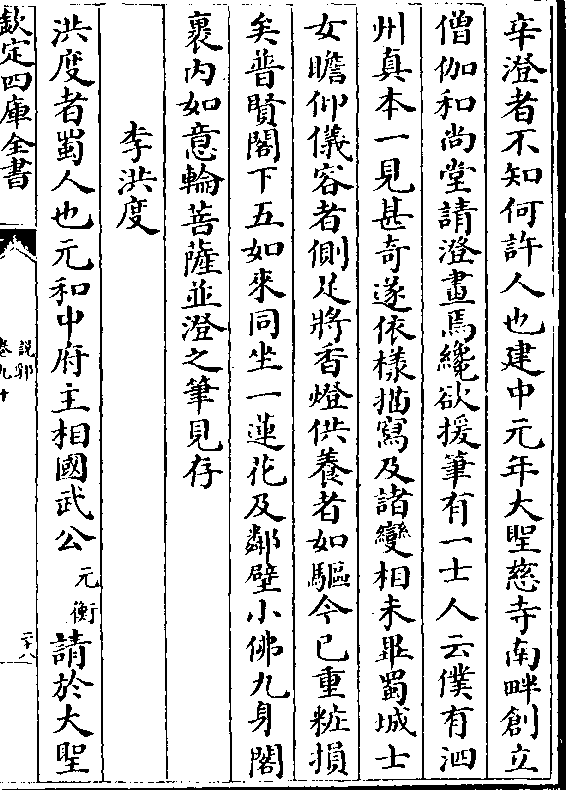 辛澄者不知何許人也建中元年大聖慈寺南畔創立
僧伽和尚堂請澄畫焉纔欲援筆有一士人云僕有泗
州真本一見甚奇遂依樣描寫及諸變相未畢蜀城士
女瞻仰儀容者側足將香燈供養者如驅今已重粧損
矣普賢閣下五如來同坐一蓮花及鄰壁小佛九身閣
裏内如意輪菩薩並澄之筆見存
李洪度
洪度者蜀人也元和中府主相國武公元衡請於大聖
欽定四庫全書
說郛
卷九十
二十八